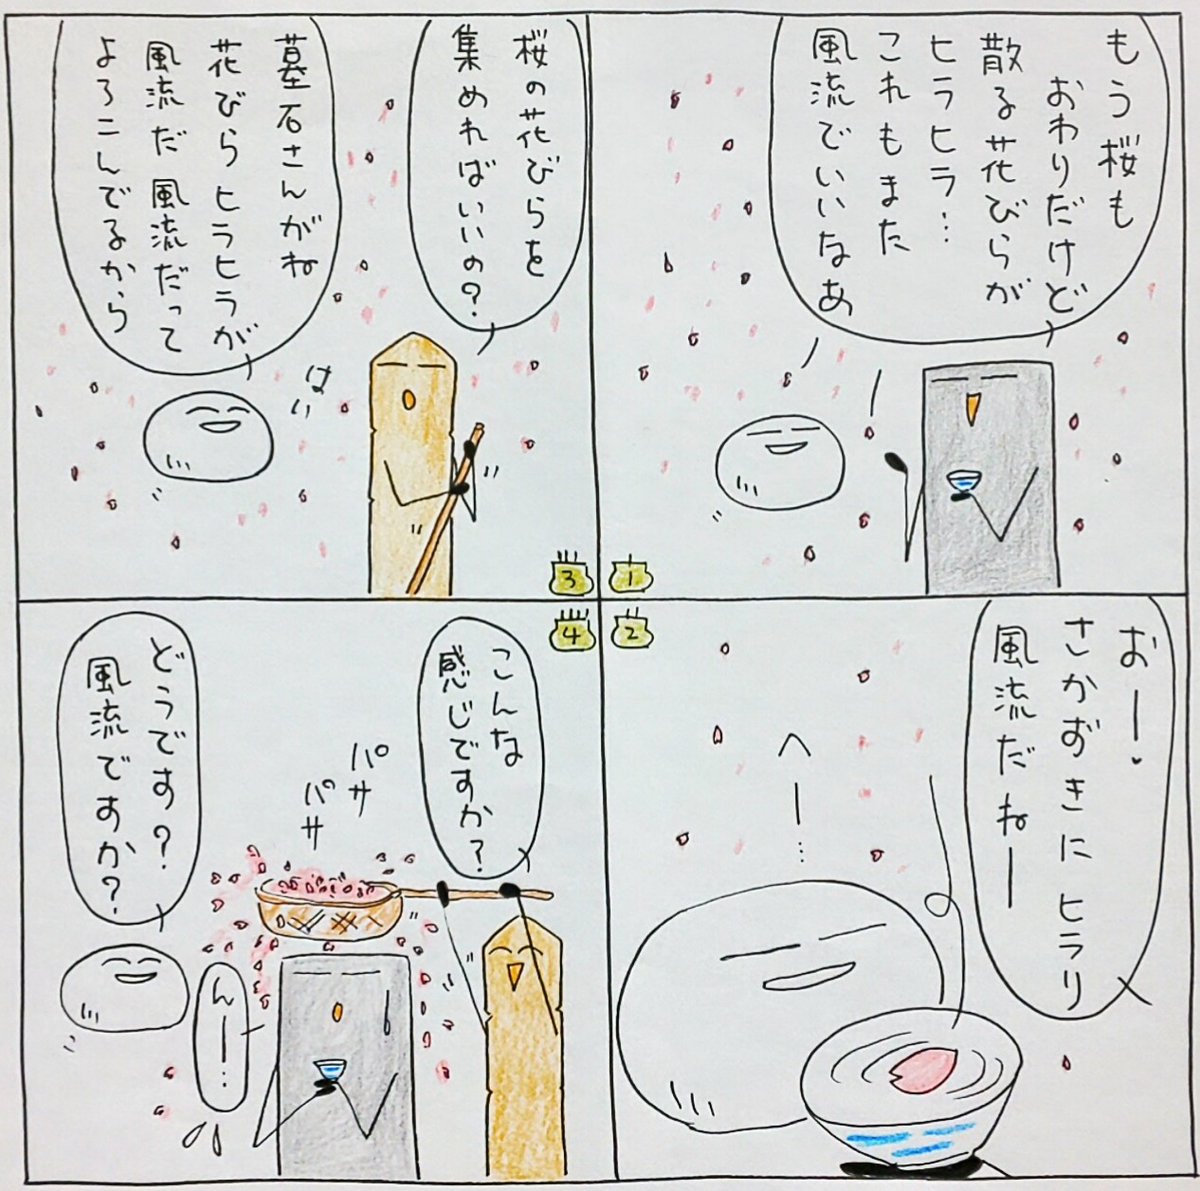 もう桜も
おわりだけど
散る花びらが
ヒラヒラ…
これもまた
風流でいいなあ
1
2
おー。
さかずきにヒラリ
風流だねー
へー…
桜の花びらを
集めればいいの?
はい
墓石さんがね
花びらヒラヒラが
風流だ風流だって
よろこんでるから
3
4
こんな
感じですか?
パサ
パサ
どうです?
風流ですか?
んー…